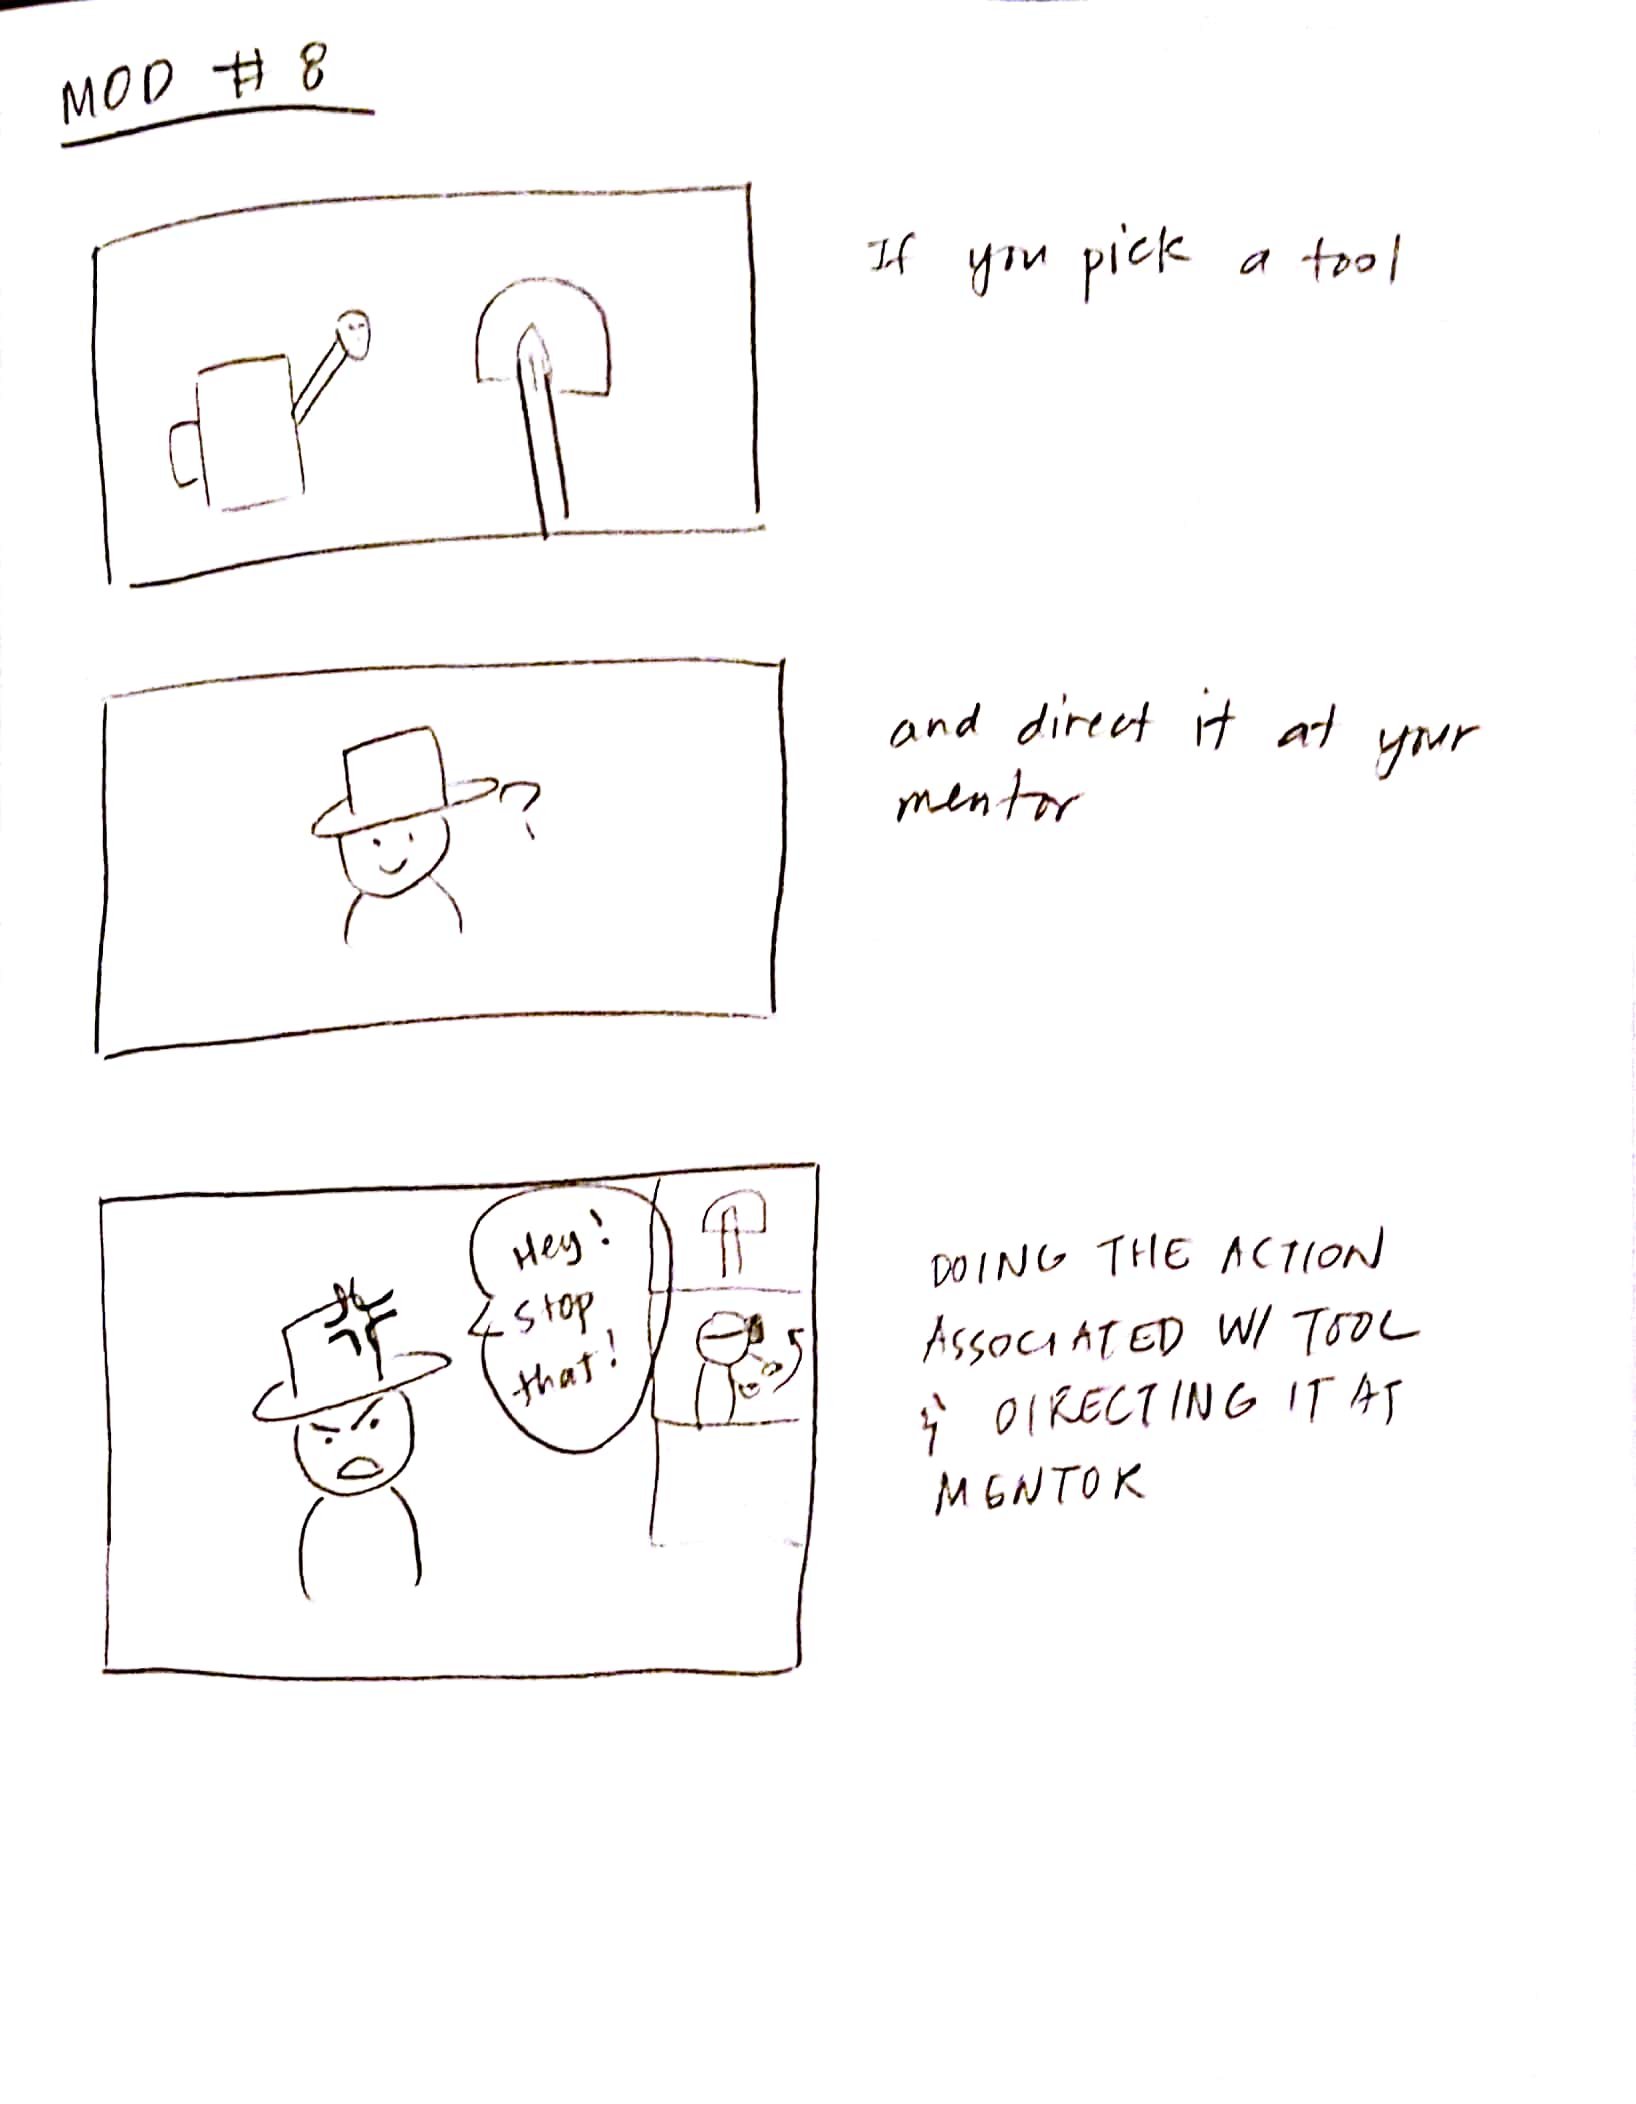 MOD # 8
If you pick a tool
and direct it at your
mentor
?
Hey!
stop
that!
DOING THE ACTION
ASSOCIATED W/ TOOL
& DIRECTING IT AT
MENTOR